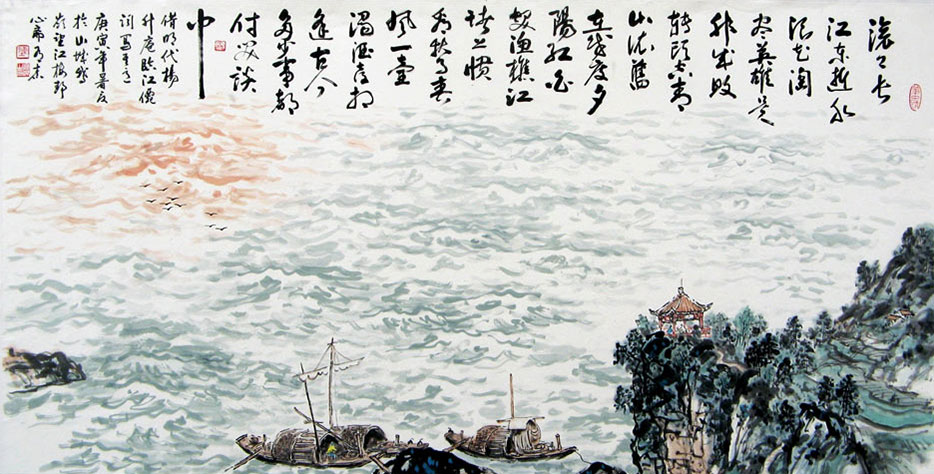 滚々长
江东逝水
浪花淘
尽英雄是
非成败
转头空青
山依旧
在几度夕
阳红白
发渔樵江
渚上惯
看秋月春
风一壶
浊酒喜相
逢古今
多少事都
付笑谈
中
借明代杨
升庵临江僊
词写其意
庚寅年
於山城
望江楼